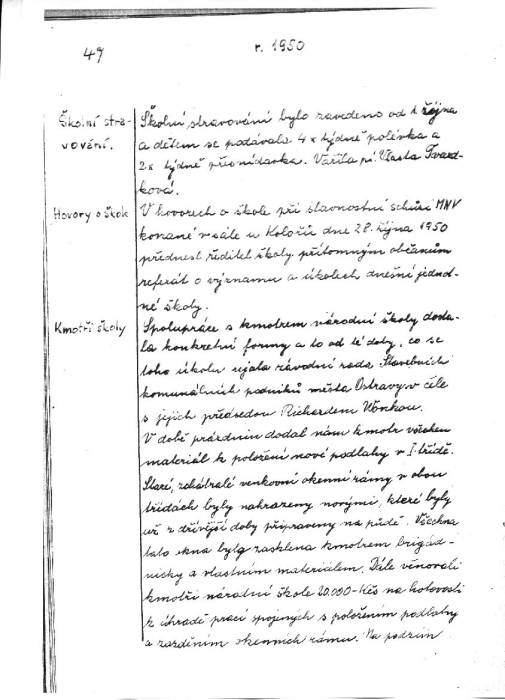 49
r. 1950
Školní stra-
vování.
Školní stravování bylo zavedeno od 1. října
a dětem se podávala 4 x týdně polévka a
2x týdně přesnídávka. Vařila pí Vlasta Tvard-
ková.
Hovory o škole
V hovorech o škole při slavnostní schůzi MNV
konané v sále u Kolářů dne 28. října 1950
přednesl ředitel školy přítomným občanům
referát o významu a úkolech dnešní jednot-
né školy.
Kmotři školy
Spolupráce s kmotrem národní školy doda-
la konkretní formy a to od té doby, co se
toho úkolu ujala závodní rada Stavebních
komunálních podniků města Ostravy v čele
s jejich předsedou Richardem Wonkou.
V době prázdnin dodal nám kmotr všechen
materiál k položení nové podlahy v I. třídě.
Staré, zchátralé venkovní okenní rámy v obou
třídách byly nahrazeny novými, které byly
už z dřívější doby připraveny na půdě. Všechna
tato okna byla zasklena kmotrem brigád-
nicky a vlastním materiálem. Dále věnovali
kmotři národní škole 20.000 Kčs na hotovosti
k úhradě prací spojených s položením podlahy
a zazděním okenních rámu. Na podzim